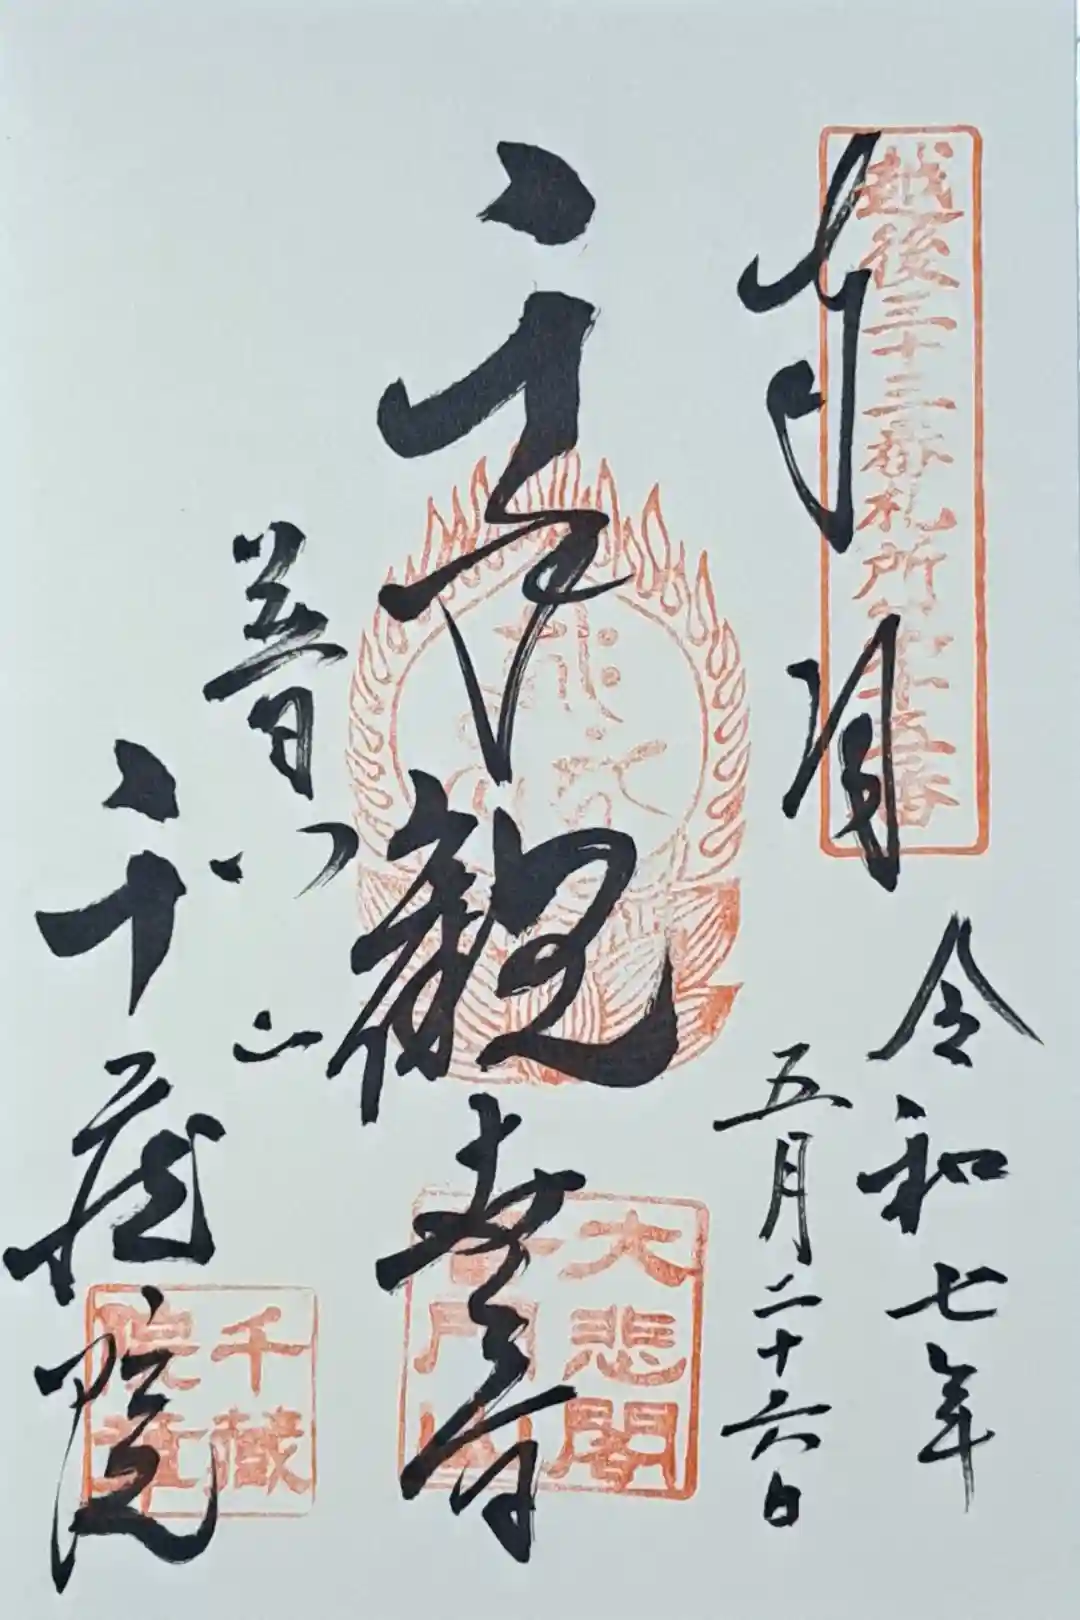 越後三十三番札所第十五番
奉拝
令和七年
五月二十六日
千手観世音
大悲閣
普門山
普門山
千蔵院
千蔵
院章